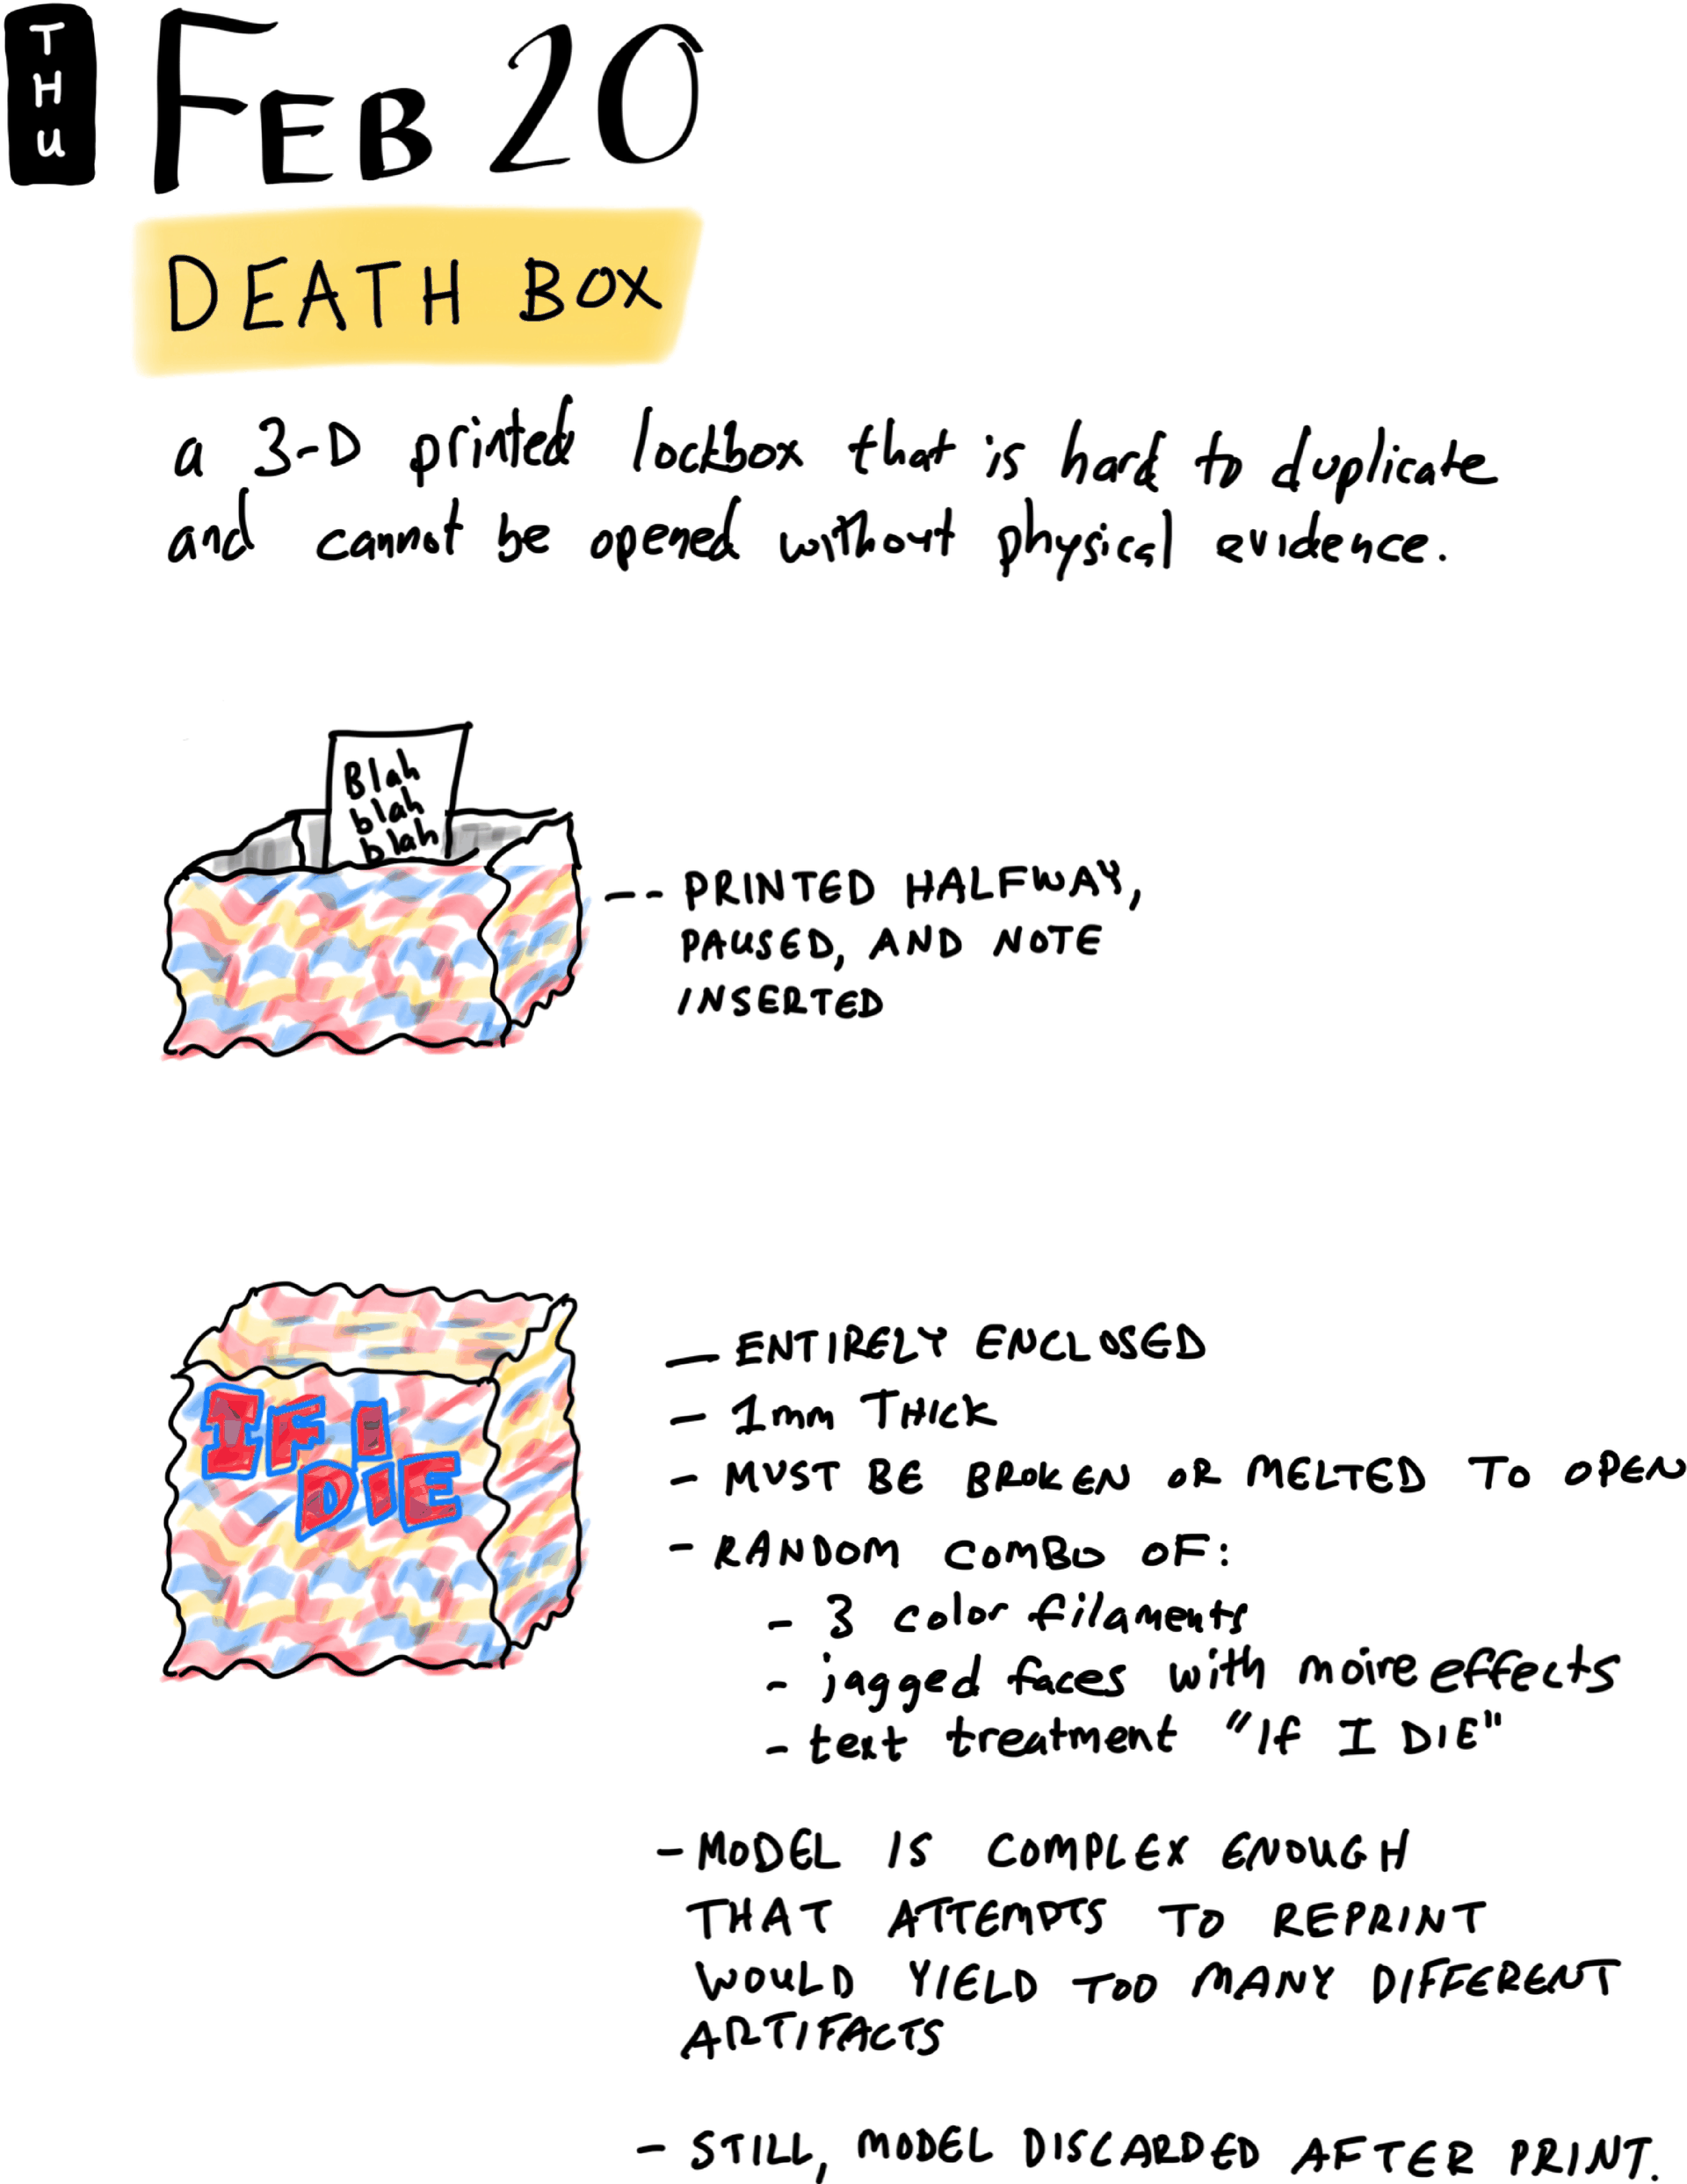 THU
FEB 20
DEATH BOX
a 3-D printed lockbox that is hard to duplicate
and cannot be opened without physical evidence.
Blah
blah
blah
-- PRINTED HALFWAY,
PAUSED, AND NOTE
INSERTED
IF I
DIE
— ENTIRELY ENCLOSED
- 1mm THICK
- MUST BE BROKEN OR MELTED TO OPEN
- RANDOM COMBO OF:
- 3 color filaments
- jagged faces with moire effects
- text treatment "If I DIE"
- MODEL IS COMPLEX ENOUGH
THAT ATTEMPTS TO REPRINT
WOULD YIELD TOO MANY DIFFERENT
ARTIFACTS
- STILL, MODEL DISCARDED AFTER PRINT.